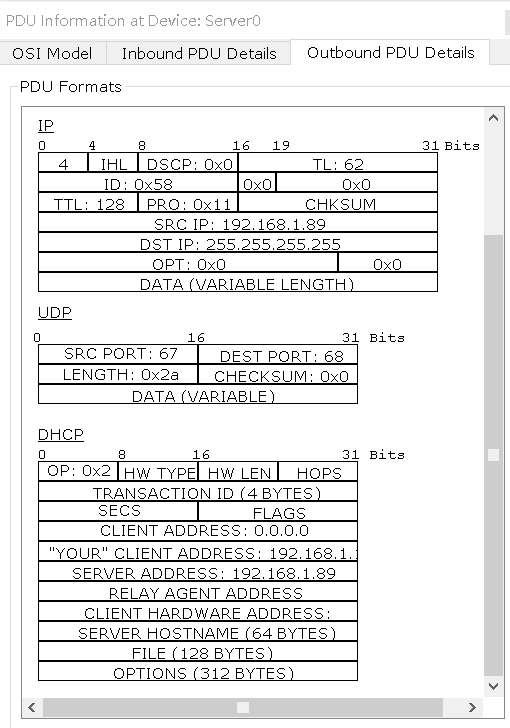 PDU Information at Device: Server0
OSI Model Inbound PDU Details Outbound PDU Details
PDU Formats
IP
0 4 8 16 19 31 Bits
4 IHL DSCP: 0x0 TL: 62
ID: 0x58 0x0 0x0
TTL: 128 PRO: 0x11 CHKSUM
SRC IP: 192.168.1.89
DST IP: 255.255.255.255
OPT: 0x0 0x0
DATA (VARIABLE LENGTH)
UDP
0 16 31 Bits
SRC PORT: 67 DEST PORT: 68
LENGTH: 0x2a CHECKSUM: 0x0
DATA (VARIABLE)
DHCP
0 8 16 31 Bits
OP: 0x2 HW TYPE HW LEN HOPS
TRANSACTION ID (4 BYTES)
SECS FLAGS
CLIENT ADDRESS: 0.0.0.0
"YOUR" CLIENT ADDRESS: 192.168.1.
SERVER ADDRESS: 192.168.1.89
RELAY AGENT ADDRESS
CLIENT HARDWARE ADDRESS:
SERVER HOSTNAME (64 BYTES)
FILE (128 BYTES)
OPTIONS (312 BYTES)